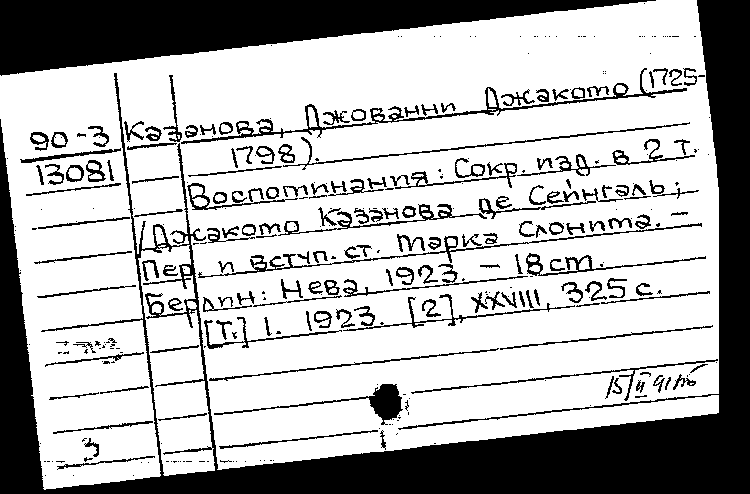 90-3 Казанова, Джованни Джакомо (1725-
13081 1798).
Воспоминания: Сокр. изд. в 2 т.
/Джакомо Казанова де Сейнгаль;
Пер. и вступ. ст. Марка Слонима. –
Берлин: Нева, 1923. – 18 см.
[Т.] 1. 1923. [2], XXVIII, 325 с.
15/II 91
3